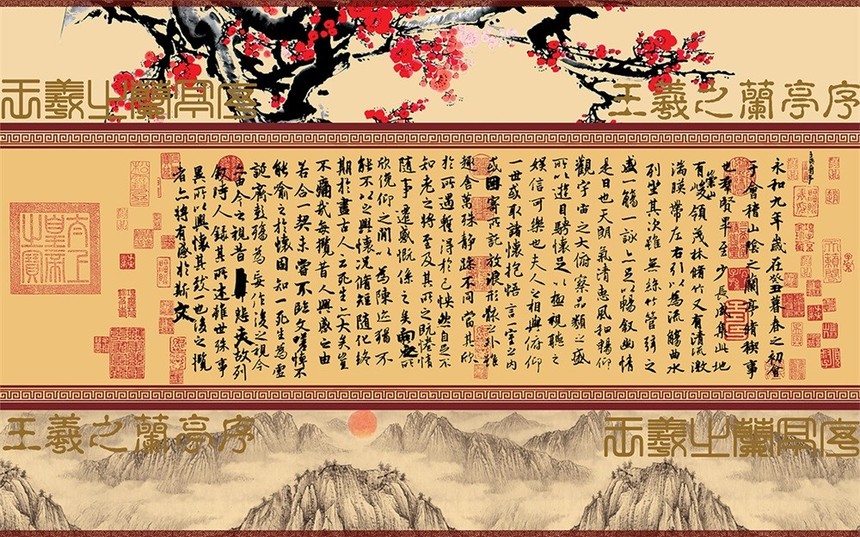 王羲之蘭亭序
王羲之蘭亭序
永和九年歲在癸丑暮春之初會
于會稽山陰之蘭亭脩禊事
也羣賢畢至少長咸集此地
有崇山峻領茂林脩竹又有清流激
湍暎帶左右引以為流觴曲水
列坐其次雖無絲竹管弦之
盛一觴一詠亦足以暢敘幽情
是日也天朗氣清惠風和暢仰
觀宇宙之大俯察品類之盛
所以遊目騁懷足以極視聽之
娛信可樂也夫人之相與俯仰
一世或取諸懷抱悟言一室之內
或因寄所託放浪形骸之外雖
趣舍萬殊靜躁不同當其欣
於所遇暫得於己怏然自足不
知老之將至及其所之既惓情
隨事遷感慨係之矣向之所
欣俛仰之閒以為陳迹猶不
能不以之興懷況脩短隨化終
期於盡古人云死生亦大矣豈
不痛哉每攬昔人興感之由
若合一契未嘗不臨文嗟悼不
能喻之於懷固知一死生為虛
誕齊彭殤為妄作後之視今
亦由今之視昔悲夫故列
敘時人錄其所述雖世殊事
異所以興懷其致一也後之攬
者亦將有感於斯文
太上皇帝之寶
王羲之蘭亭序
王羲之蘭亭序